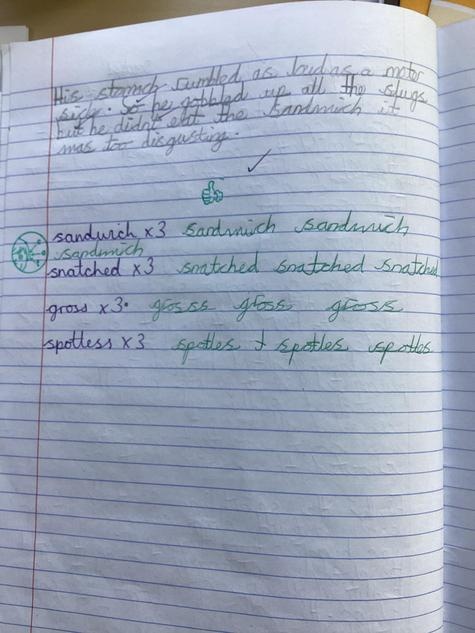 His stomch rumbled as loud as a motor
sicle. So he gobbled up all the slugs
but he didn't eat the sandwich it
was too disgusting.
sandwich x3 sandwich sandwich
sandwich
snatched x3 snatched snatched snatched
gross x3. gross gross
spotless x3 spotles spotles spotles